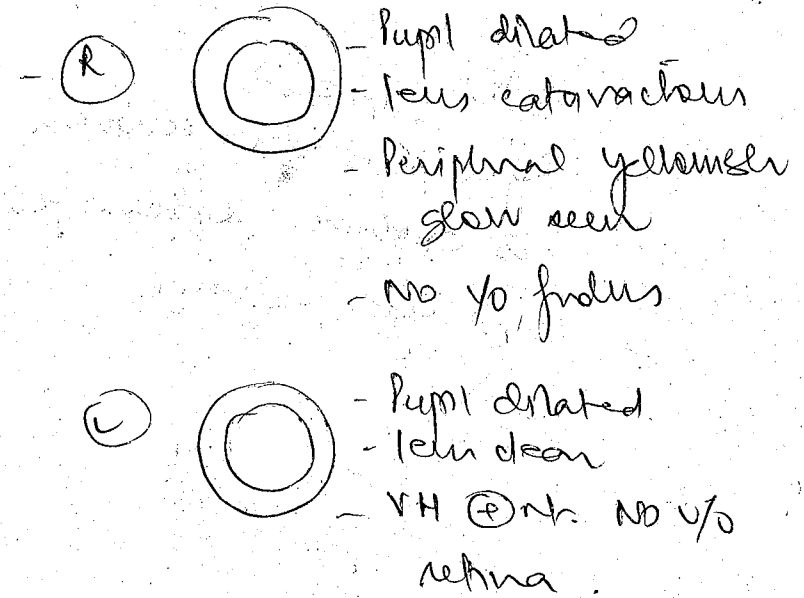 - R - Pupil dilated
- lens cataractous
- Peripheral yellowish
glow seen
- No v/o fundus
L - Pupil dilated
- lens clear
- VH ⊕nt. No v/o
retina.